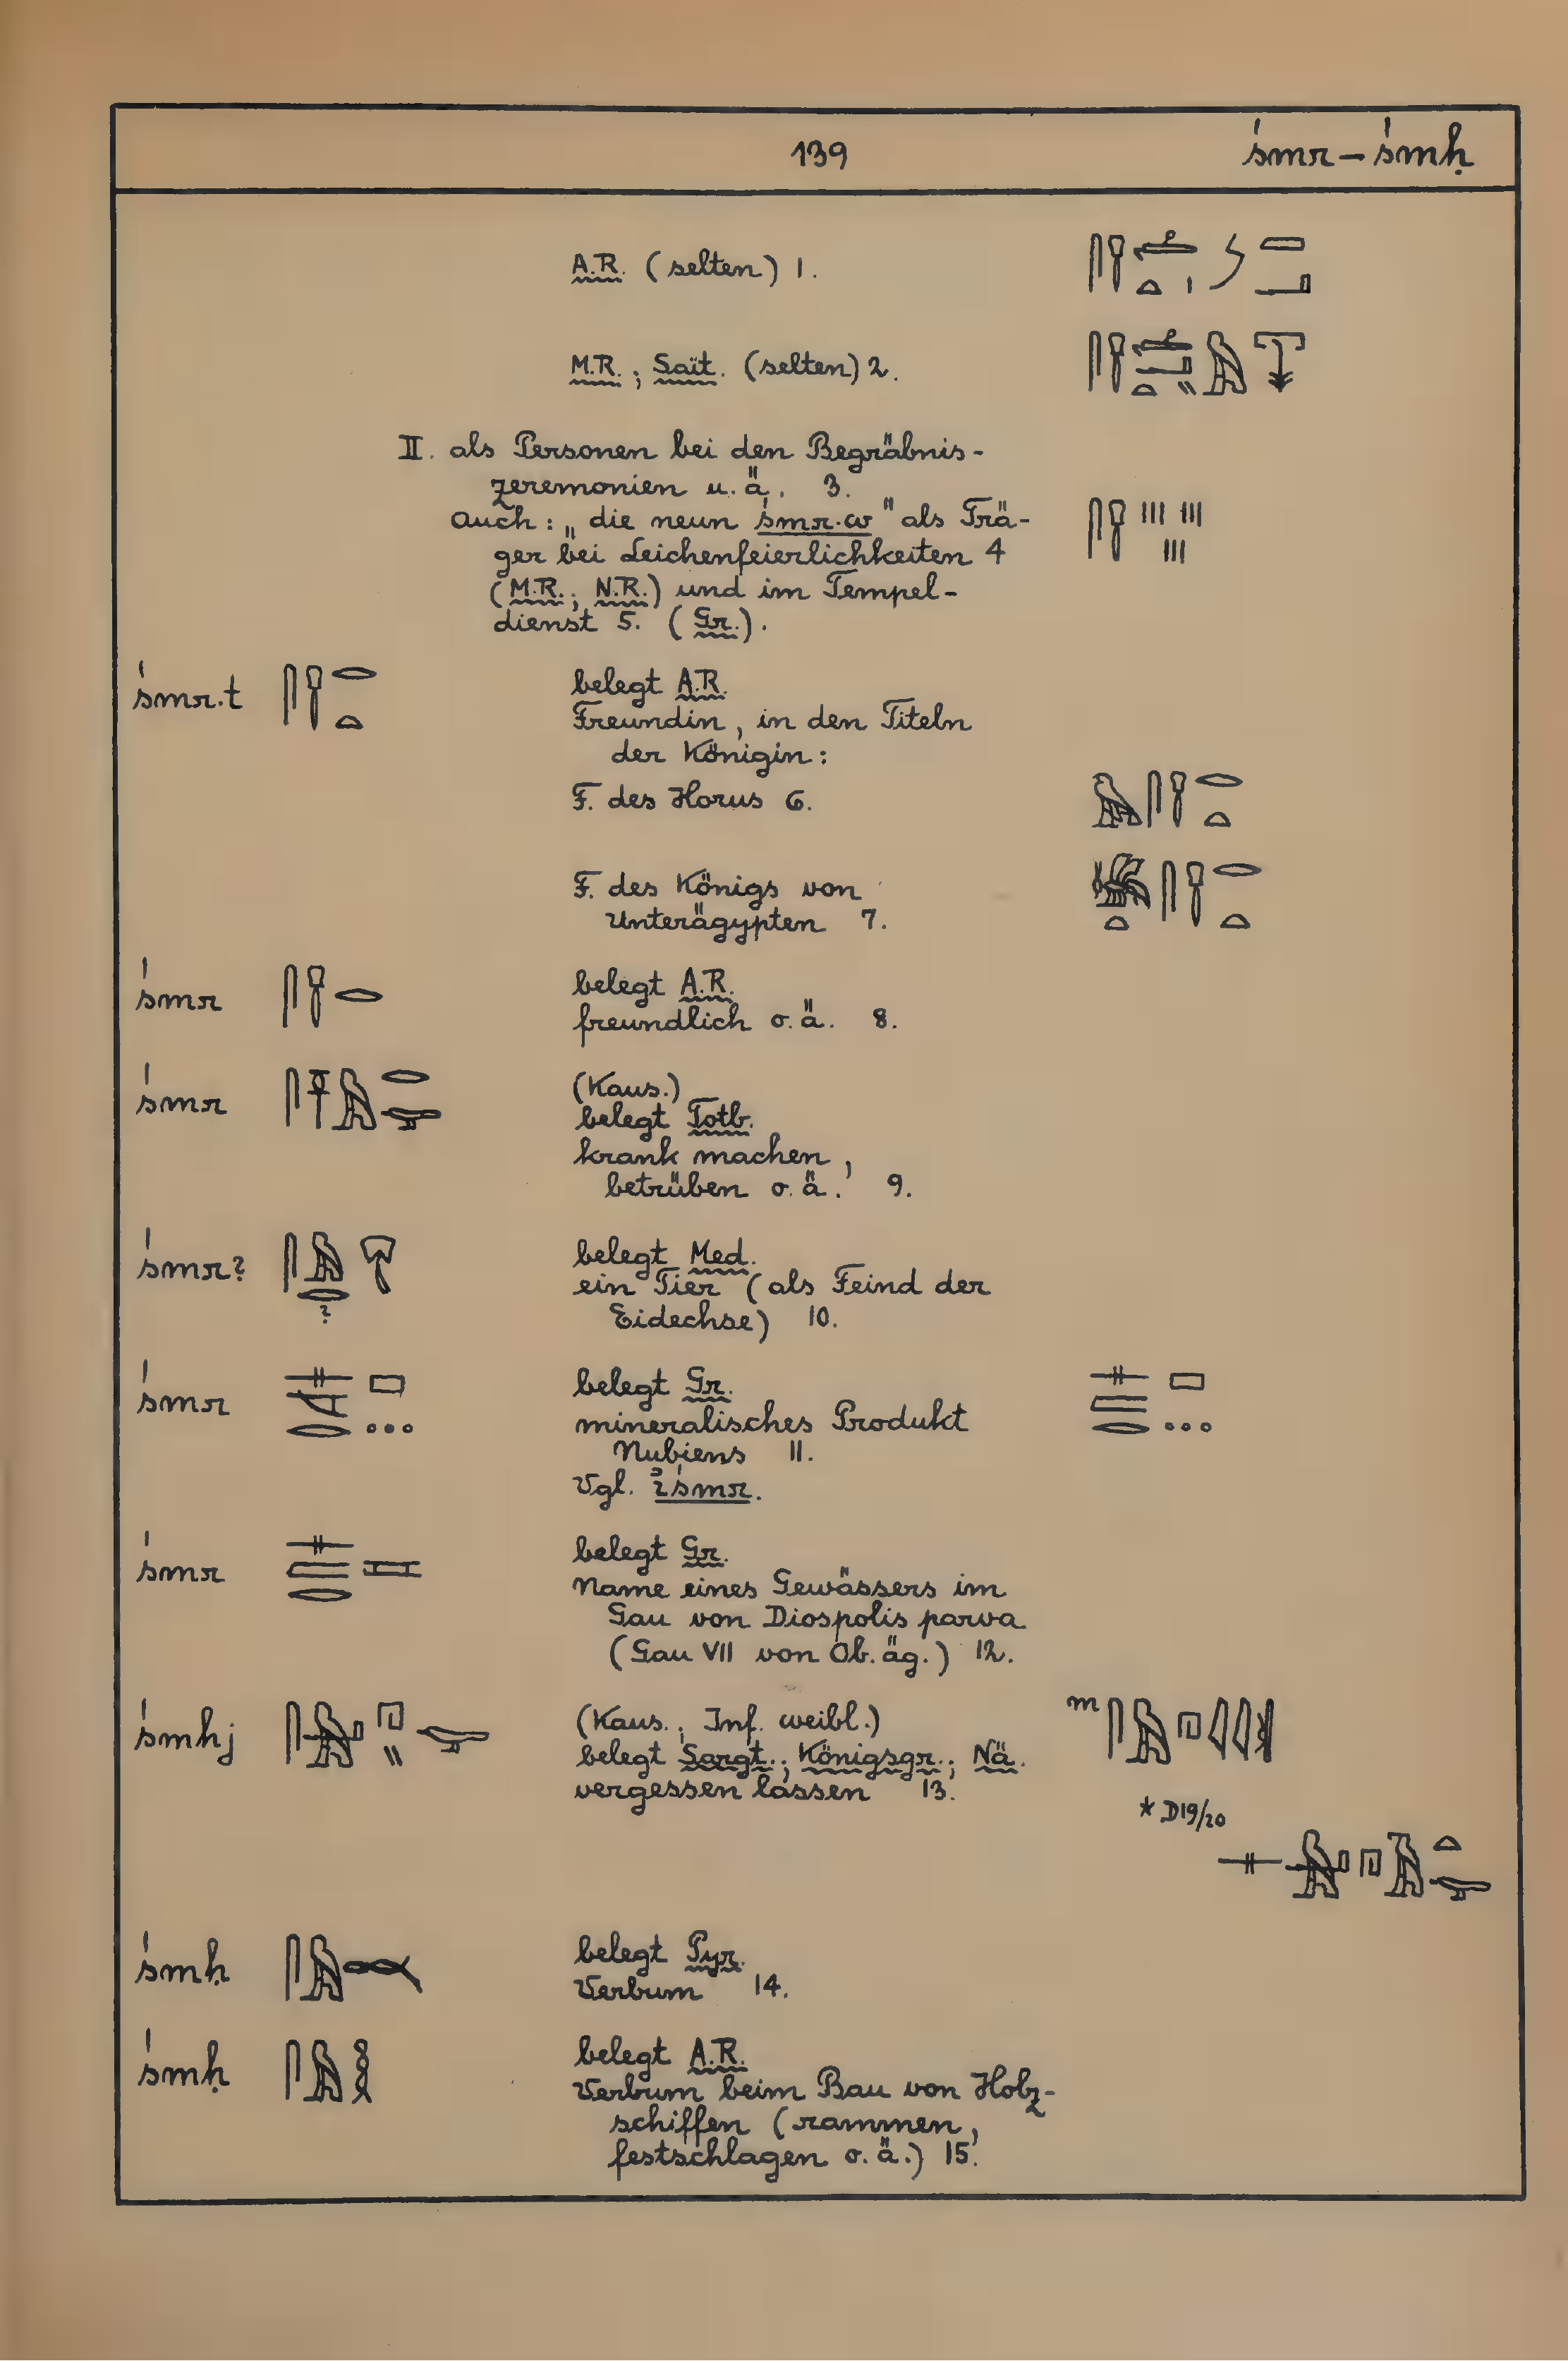 139
śmr – śmḥ
A.R. (selten) 1.
M.R.; Saït. (selten) 2.
II. als Personen bei den Begräbnis-
zeremonien u. ä. 3.
Auch: „die neun śmr.w" als Trä-
ger bei Leichenfeierlichkeiten 4
(M.R.; N.R.) und im Tempel-
dienst 5. (Gr.).
śmr.t
belegt A.R.
Freundin, in den Titeln
der Königin:
F. des Horus 6.
F. des Königs von
Unterägypten 7.
śmr
belegt A.R.
freundlich o. ä. 8.
śmr
(Kaus.)
belegt Totb.
krank machen,
betrüben o. ä. 9.
śmr?
?
belegt Med.
ein Tier (als Feind der
Eidechse) 10.
śmr
belegt Gr.
mineralisches Produkt
Nubiens 11.
Vgl. ꜣiśmr.
śmr
belegt Gr.
Name eines Gewässers im
Gau von Diospolis parva
(Gau VII von Ob. äg.) 12.
śmhj
(Kaus., Inf. weibl.)
m
belegt Sargt.; Königsgr.; Nä.
vergessen lassen 13.
* D19/20
śmḥ
belegt Pyr.
Verbum 14.
śmḥ
belegt A.R.
Verbum beim Bau von Holz-
schiffen (rammen,
festschlagen o. ä.) 15.